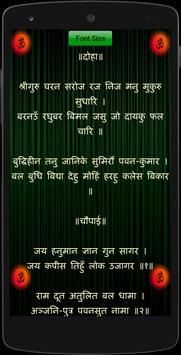 Font Size
॥दोहा॥
श्रीगुरु चरन सरोज रज निज मनु मुकुरु
सुधारि ।
बरनउँ रघुबर बिमल जसु जो दायकु फल
चारि ॥
बुद्धिहीन तनु जानिके सुमिरौं पवन-कुमार ।
बल बुधि बिद्या देहु मोहिं हरहु कलेस बिकार
॥
॥चौपाई॥
जय हनुमान ज्ञान गुन सागर ।
जय कपीस तिहुँ लोक उजागर ॥१॥
राम दूत अतुलित बल धामा ।
अञ्जनि-पुत्र पवनसुत नामा ॥२॥